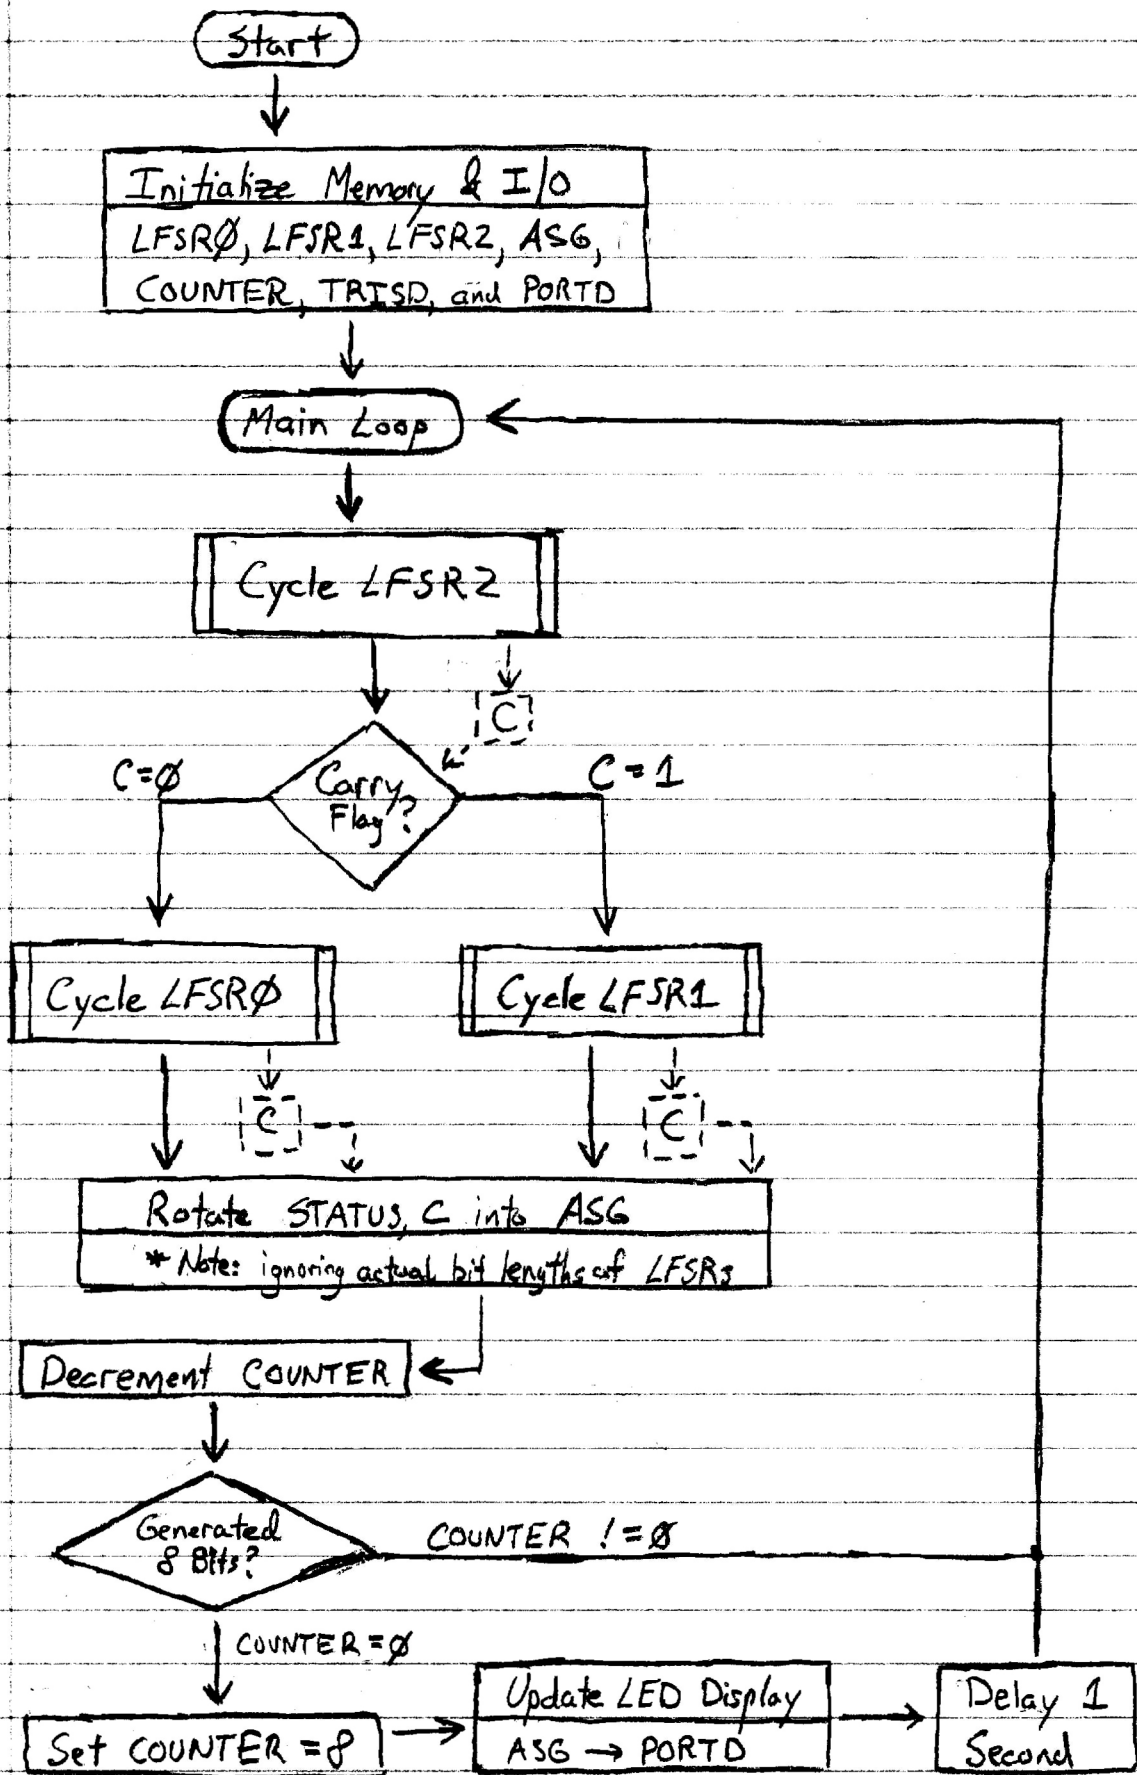 Start
Initialize Memory & I/O
LFSRØ, LFSR1, LFSR2, ASG,
COUNTER, TRISD, and PORTD
Main Loop
Cycle LFSR2
C
C=Ø
Carry
Flag?
C=1
Cycle LFSRØ
Cycle LFSR1
C
C
Rotate STATUS, C into ASG
* Note: ignoring actual bit lengths of LFSRs
Decrement COUNTER
Generated
8 Bits?
COUNTER != Ø
COUNTER = Ø
Set COUNTER = 8
Update LED Display
ASG → PORTD
Delay 1
Second